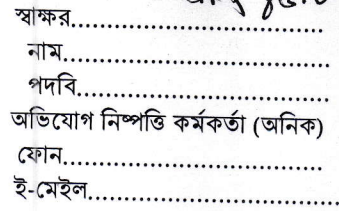 স্বাক্ষর..............................
নাম..............................
পদবি..............................
অভিযোগ নিষ্পত্তি কর্মকর্তা (অনিক)
ফোন..............................
ই-মেইল..............................